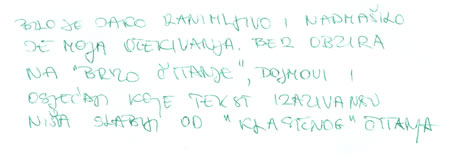 BILO JE JAKO ZANIMLJIVO I NADMAŠILO
JE MOJA OČEKIVANJA. BEZ OBZIRA
NA "BRZO ČITANJE", DOJMOVI I
OSJEĆAJI KOJE TEKST IZAZIVA NISU
NIŠTA SLABIJI OD "KLASIČNOG" ČITANJA